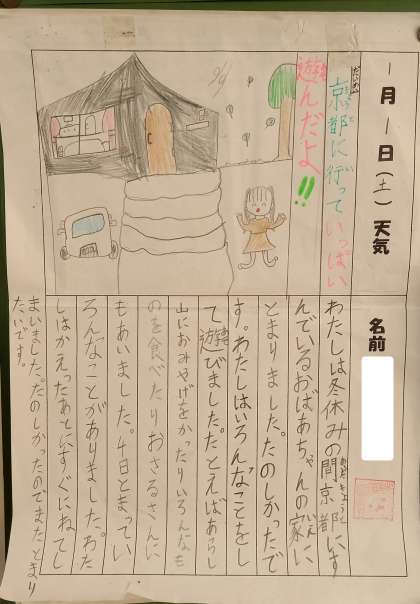 一月一日(土)天気
名前
だいめい
京都に行っていっぱい
遊んだよ!!
わたしは冬休みの間京都にす
んでいるおばあちゃんの家に
とまりました。たのしかったで
す。わたしはいろんなことをし
て遊びました。たとえばあらし
山におみやげをかったりいろんなも
のを食べたりおさるさんに
もあいました。4日とまってい
ろんなことがありました。わた
しはかえったあとにすぐにねてし
まいました。たのしかったのでまたとまり
たいです。